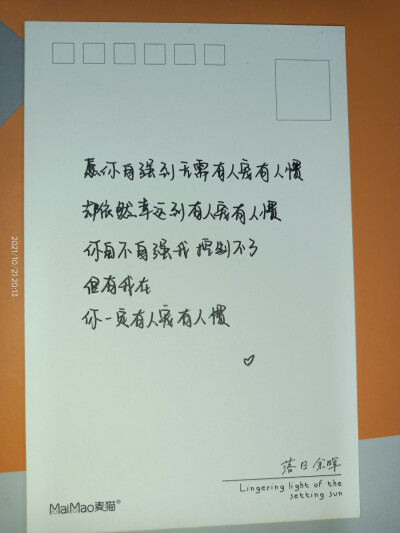 愿你自强到无需有人宠有人惯
却依然幸运到有人宠有人惯
你自不自强我控制不了
但有我在
你一定有人宠有人惯
落日余晖
Lingering light of the
setting sun
MaiMao麦猫®
2021/10/21 20:13